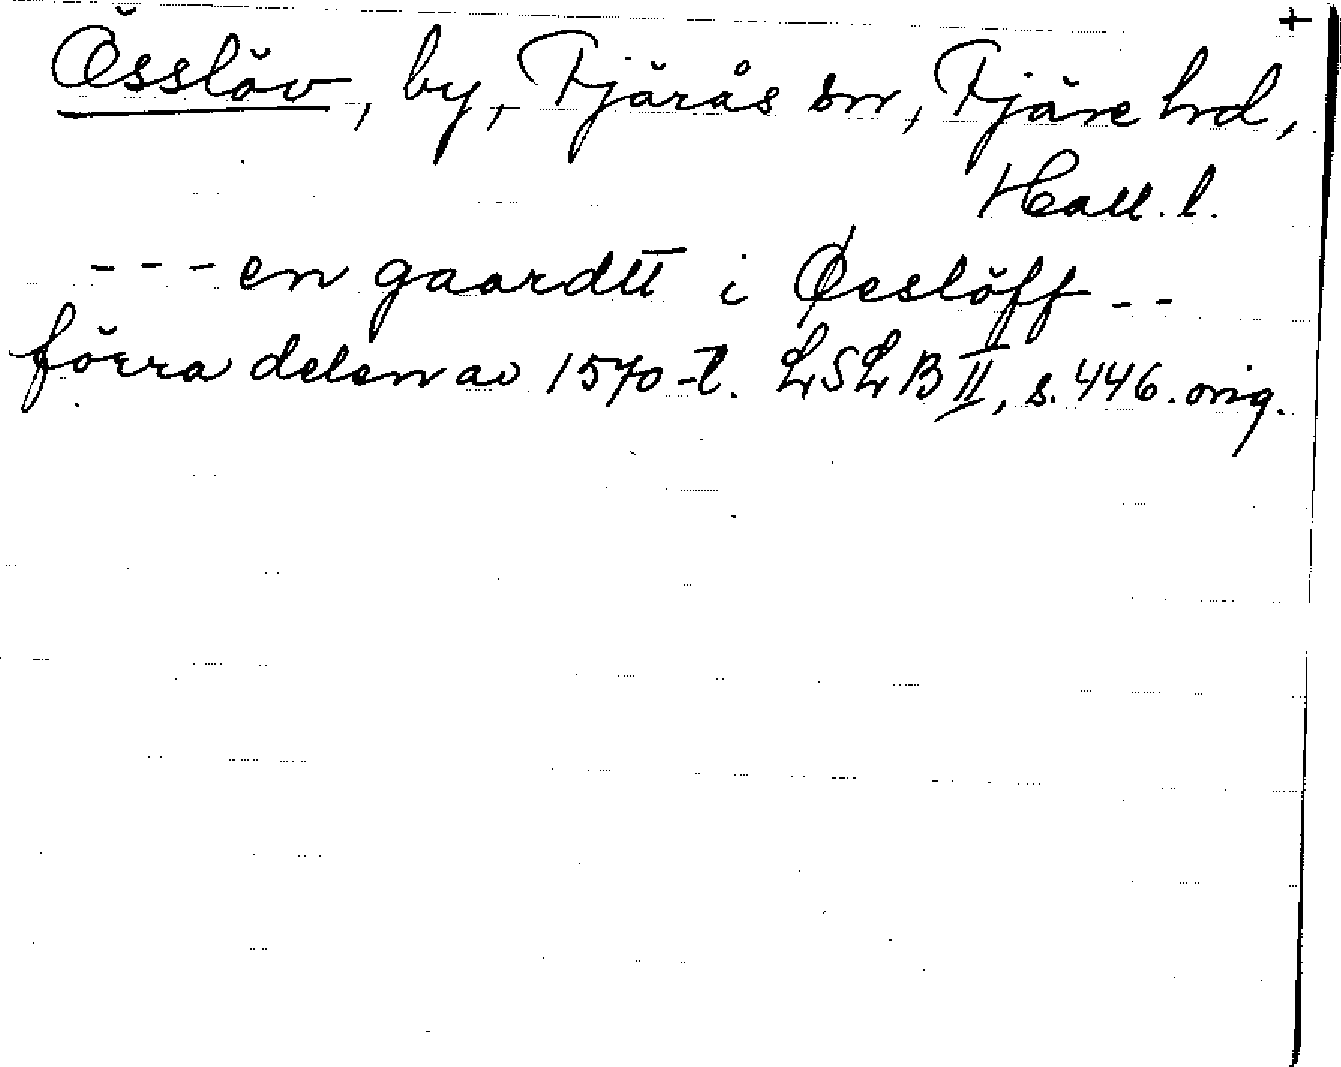 +
Össlöv, by, Fjärås sn, Fjäre hd,
Hall. l.
--- en gaardtt i Øeslöff --
förra delen av 1570-t. LSLB II, s. 446. orig.